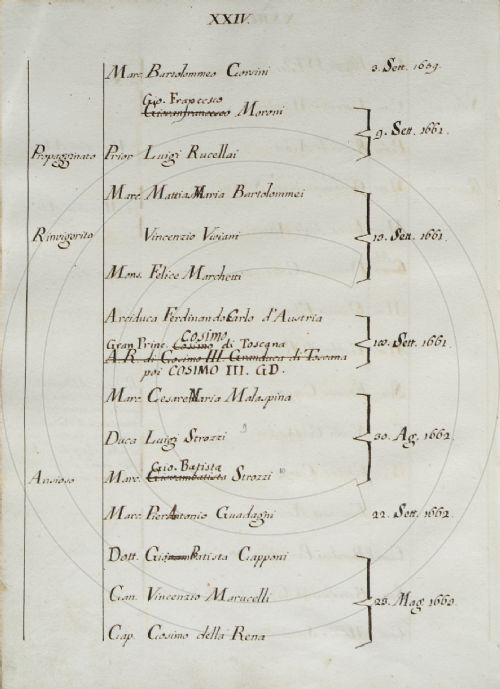 XXIV.
Marc. Bartolommeo Corsini 3. Sett. 1659.
Gio. Francesco
Giovanfrancesco Moroni
9. Sett. 1661.
Propagginato Prior Luigi Rucellai
Marc. Mattias Maria Bartolommei
Rinvigorito Vincenzio Viviani 13. Sett. 1661.
Mons. Felice Marchetti
Arciduca Ferdinando Carlo d'Austria
COSIMO
Gran Princ. Cosimo di Toscana 100. Sett. 1661.
A.R. di Cosimo III. Granduca di Toscana
poi COSIMO III. G.D.
Marc. Cesare Maria Malaspina
Duca Luigi Strozzi 30. Ag. 1662.
Gio. Batista
Ansioso Marc. Giovambatista Strozzi
Marc. Pier Antonio Guadagni 22. Sett. 1662.
Dott. Giovam Batista Capponi
Can. Vincenzio Marucelli 29. Mag. 1663.
Cap. Cosimo della Rena